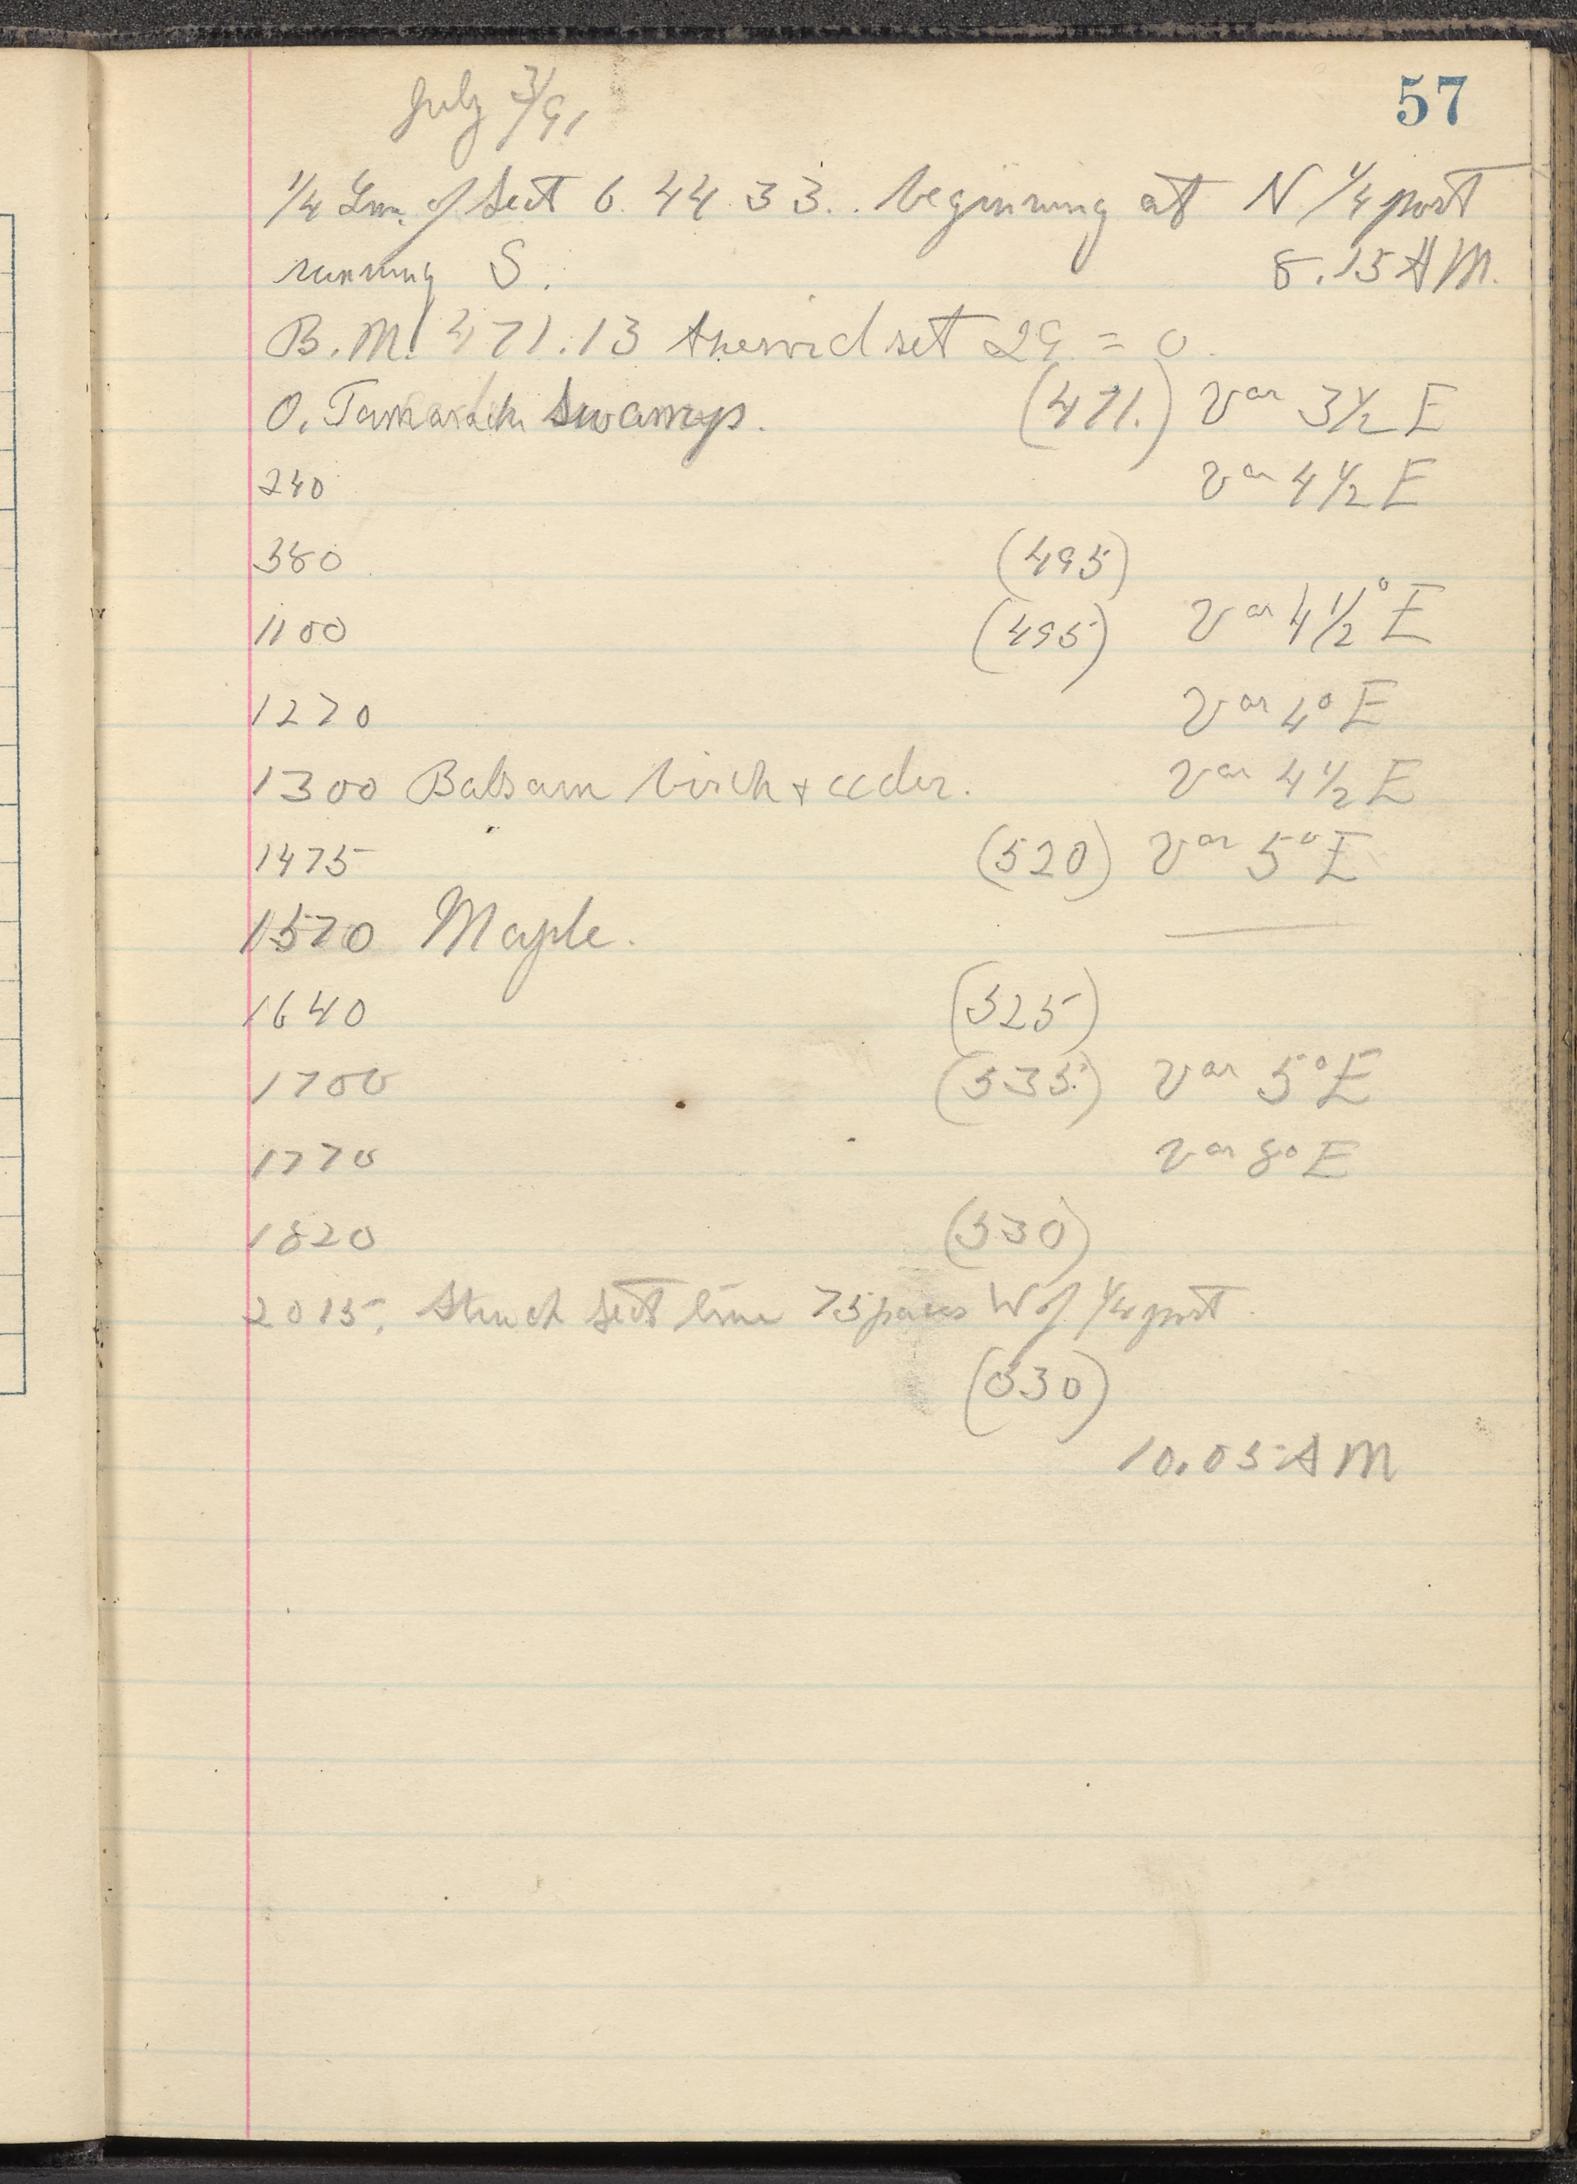 57
July 3/91
1/4 Line of Sect 6. 44. 33. beginning at N 1/4 post
running S. 8.15 A M.
B.M. 471.13 Aneroid set 29 = 0.
0. Tamarack Swamp. (471.) Var 3 1/2 E
240 Var 4 1/2 E
380 (495)
1100 (495) Var 4 1/2° E
1270 Var 4° E
1300 Balsam birch + ceder. Var 4 1/2 E
1475 (520) Var 5° E
1570 Maple.
1640 (525)
1700 (535) Var 5° E
1770 Var 8° E
1820 (530)
2015. Struck sect line 75 paces W of 1/4 post.
(530)
10.05 A M